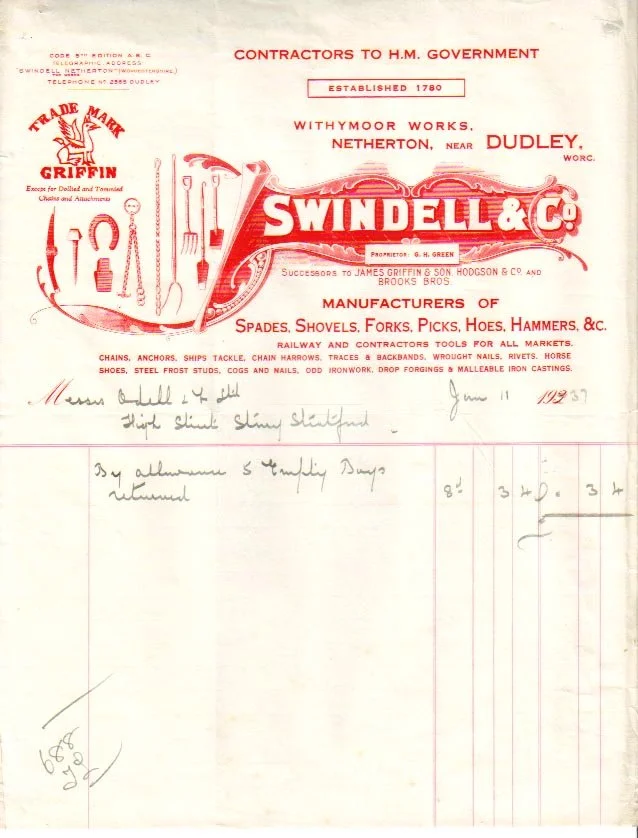 CODE 5TH EDITION A.B.C.
TELEGRAPHIC ADDRESS
"SWINDELL NETHERTON" (WORCESTERSHIRE)
TELEPHONE No 2365 DUDLEY
CONTRACTORS TO H.M. GOVERNMENT
ESTABLISHED 1780
TRADE MARK
GRIFFIN
Except for Dollied and Tommied
Chains and Attachments
WITHYMOOR WORKS,
NETHERTON, NEAR DUDLEY,
WORC.
SWINDELL & Co
PROPRIETOR: G. H. GREEN
SUCCESSORS TO JAMES GRIFFIN & SON. HODGSON & Co. AND
BROOKS BROS.
MANUFACTURERS OF
SPADES, SHOVELS, FORKS, PICKS, HOES, HAMMERS, &c.
RAILWAY AND CONTRACTORS TOOLS FOR ALL MARKETS.
CHAINS, ANCHORS, SHIPS TACKLE, CHAIN HARROWS, TRACES & BACKBANDS, WROUGHT NAILS, RIVETS. HORSE
SHOES, STEEL FROST STUDS, COGS AND NAILS, ODD IRONWORK, DROP FORGINGS & MALLEABLE IRON CASTINGS.
Messrs Odell & Co Ltd Jan 11 1937
High Street Stony Stratford
By allowance 5 Empty Bags
returned 8d 3 4 3 4
688